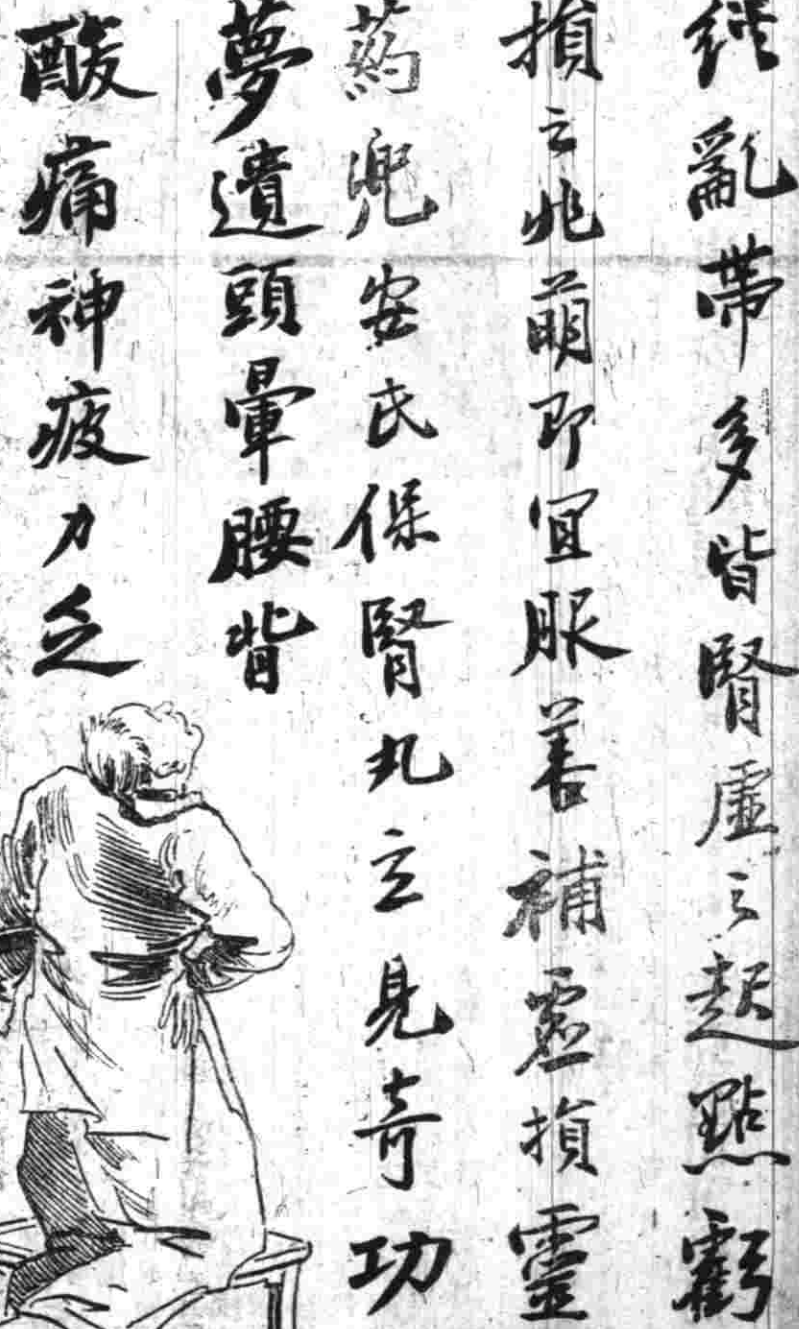 經亂帶多皆腎虛之起點虧
損之兆萌即宜服善補虛損靈
药兜安氏保腎丸立見奇功
夢遺頭暈腰背
酸痛神疲力乏